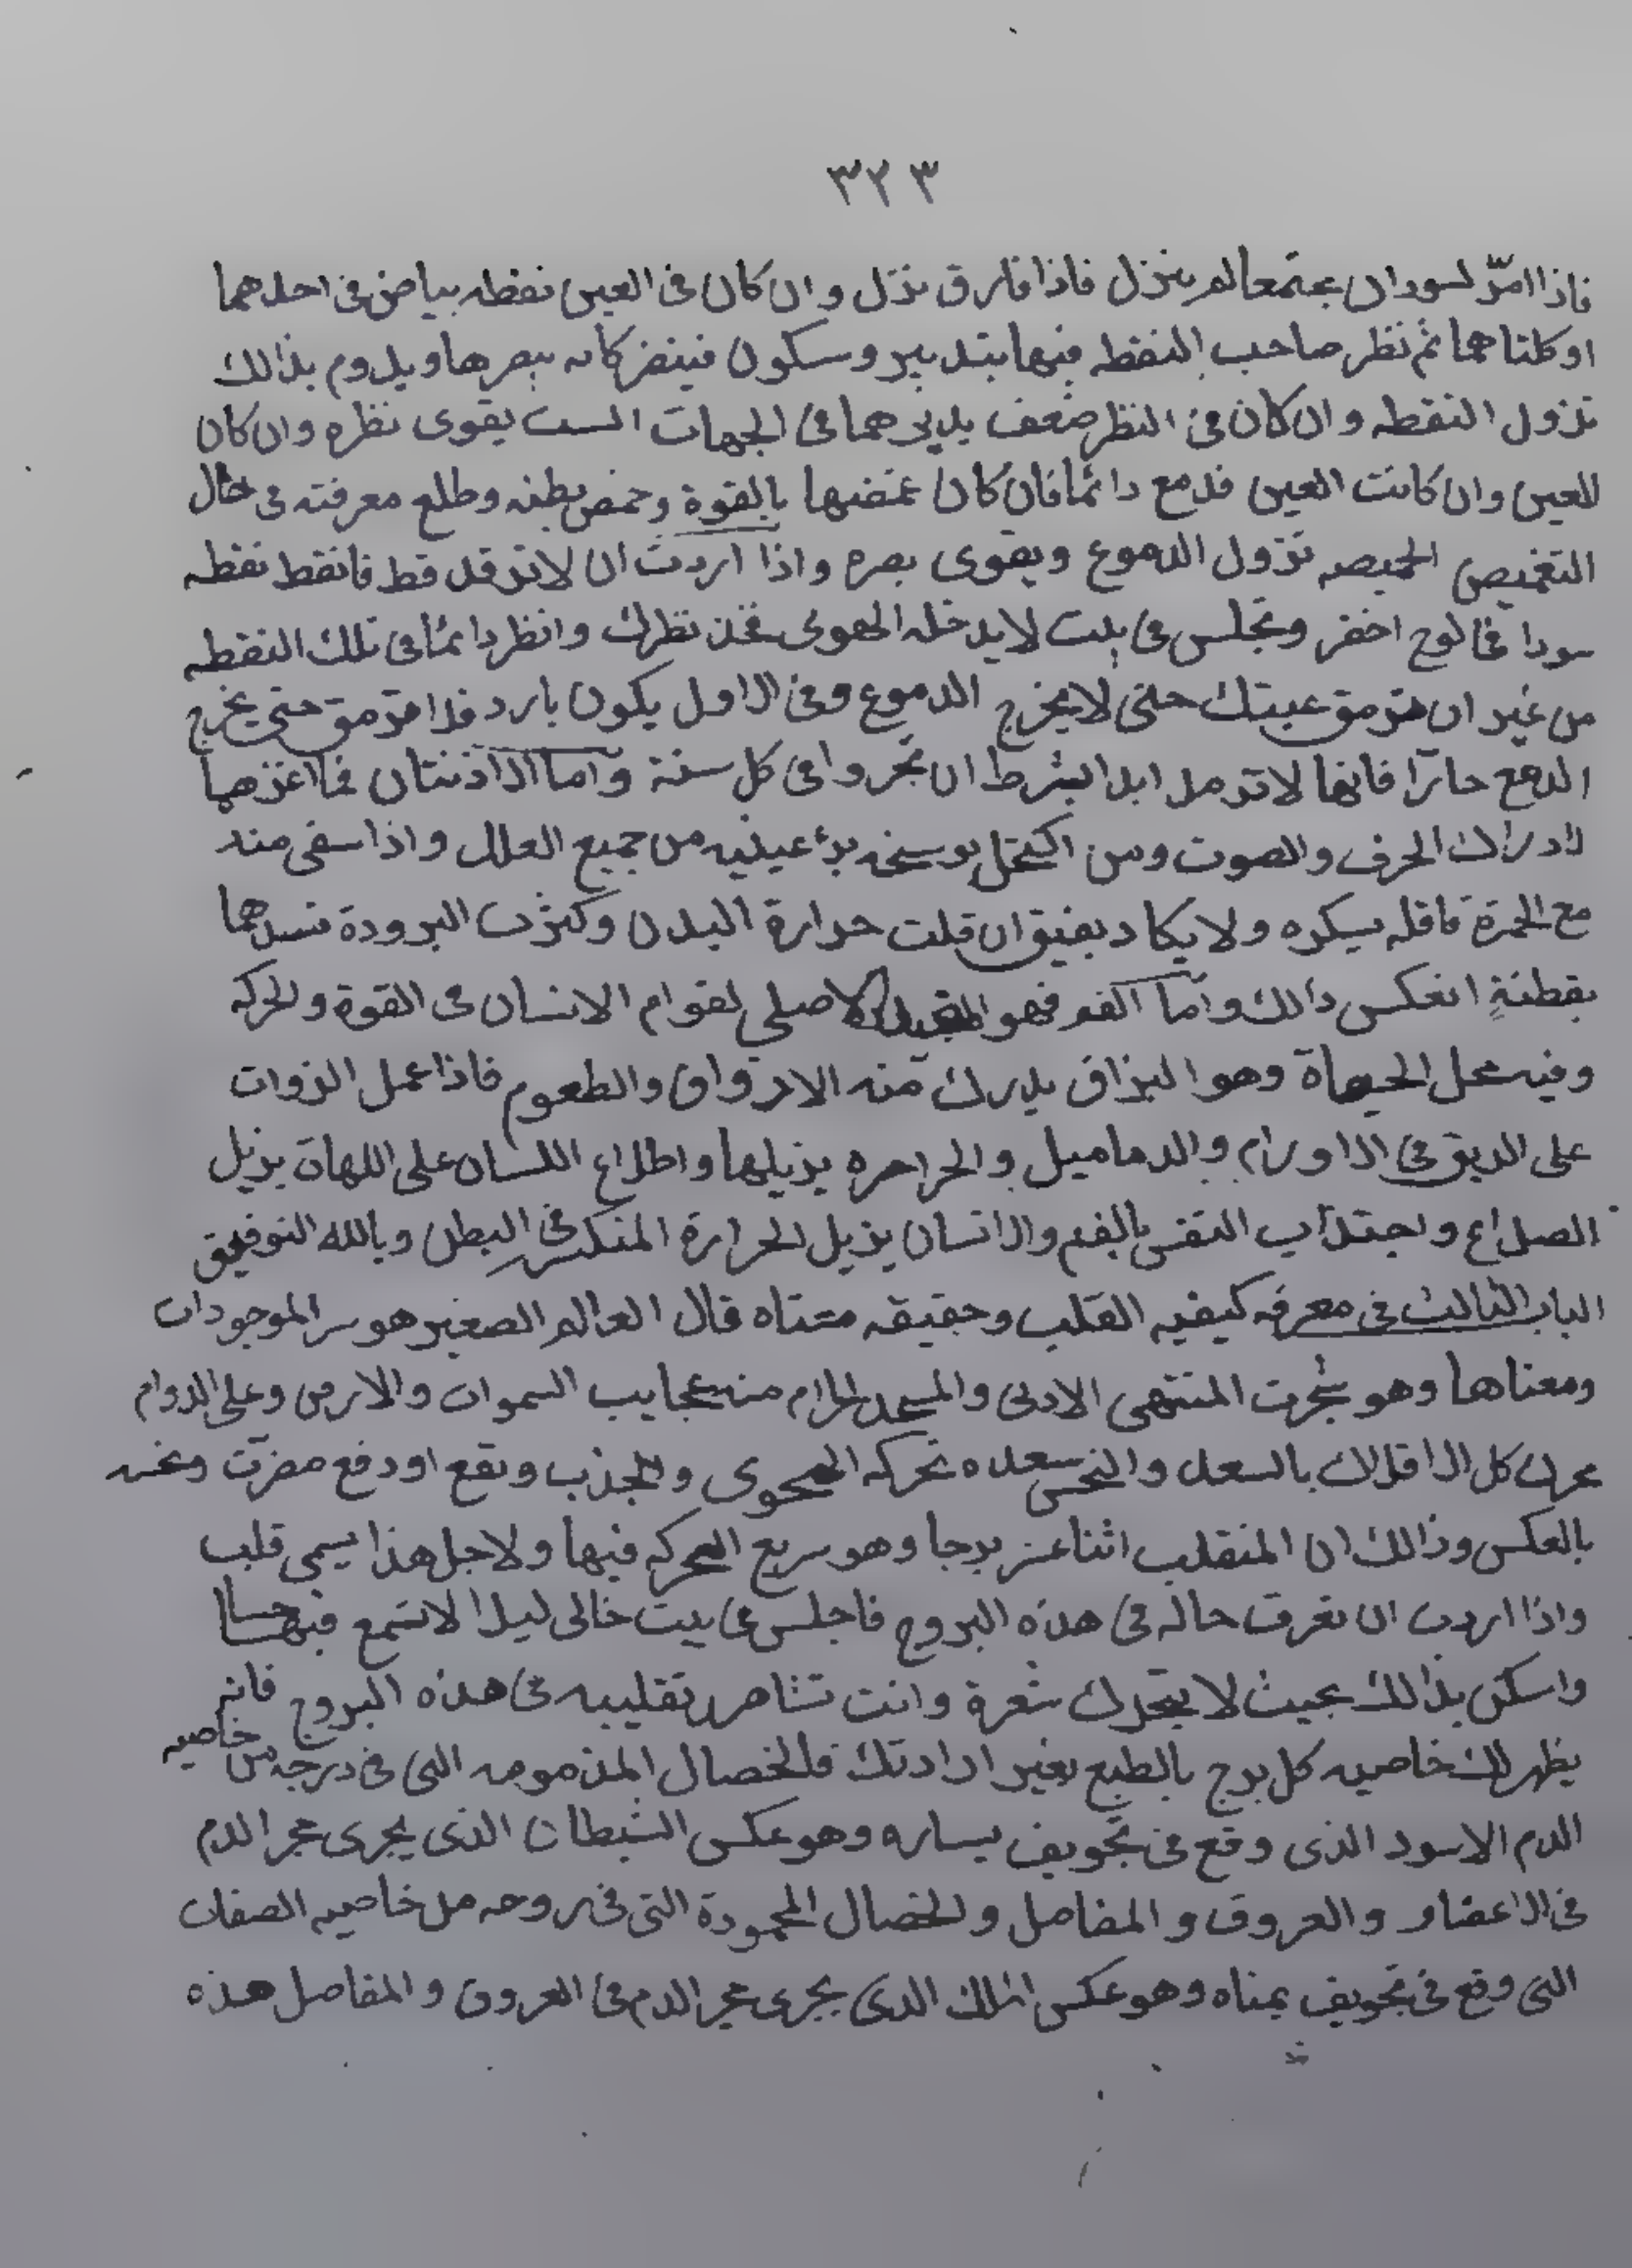 ٣٢٣
فاذا امرّ لسودان مجتمعا لم ينزل فاذا فارق نزل وان كان فى العين نفطه بياض فى احدهما
او كلتاهما ثم نظر صاحب النفطه فيها بتدبير وسكون فينفز كانه يبصرها ويدوم بذالك
تزول النفطه وان كان فى النظر ضعف يديرهما فى الجهات الست يقوى نظره وان كان
للعين وان كانت العين فدمع دائما فان كان غمضها بالقوة وحمض بطنه وطلع معرفته فى حال
التغميص تزول الدموع ويقوى بصره واذا اردت ان لا ترقد قط فانقط نفطه
سودا فى لوح اخضر وتجلس فى بيت لا يدخله الهوى فخذ نظرك وانظر دائما فى تلك النفطه
من غير ان ترمق عينك حتى لا يخرج الدموع وفى الاول يكون بارد فلا ترمق حتى يخرج
الدمع حارا فانها لا ترمد ابدا بشرط ان تجروا فى كل سنة واما الاذنتان فما اغزهما
لادراك الحرف والصوت ومن اكتحل بوسخه برء عينيه من جميع العلل واذا سقى منه
مع الخمرة فاقله يسكره ولا يكاد يفيق ان قلت حرارة البدن وكثرت البرودة فسدهما
بقطنةٍ انعكس ذالك واما الفم فهو الاصلى لقوام الانسان فى القوة والحركه
وفيه محل الحياة وهو البزاق يدرك منه الاذواق والطعوم فاذا عمل الزوات
على الديق فى الاورام والدماميل والجراحره يزيلها واطلاع اللسان على اللهات يزيل
الصداع واجتذاب النفس بالفم والانسان يزيل الحرارة المنكسر فى البطن وبالله التوفيق
الباب الثالث فى معرفة كيفيه القلب وحقيقه معناه قال العالم الصغير هو سر الموجودات
ومعناها وهو شجرت المنتهى الادنى والمسجد الحرام منه عجايب السموات والارض وعلى الدوام
محرك كل الافلاك بالسعد والنحس سعده تحركه الصحوى والمجذب ونفع او دفع مضرت ونحسه
بالعكس وذالك ان المنقلب اثنا عشر برجا وهو سريع الحركه فيها ولاجل هذا يسمى قلب
واذا اردت ان تعرف حاله فى هذه البروج فاجلس فى بيت خالى ليلا لا تسمع فيها حسا
واسكن بذالك بحيث لا يتحرك شعرة وانت تشاهد تقليبه فى هذه البروج فانه
يظهر لك خاصيه كل برج بالطبع بغير ارادتك فالخصال المذمومه التى فى درجه من خاصيه
الدم الاسود الذى وقع فى تجويف يساره وهو عكس الشيطان الذى يجرى مجر الدم
فى الاعضاء والعروق والمفاصل والخصال المحمودة التى فى روحه من خاصيه الصفات
التى وقع فى تجويف يمناه وهو عكس الملك الذى يجرى مجر الدم فى العروق والمفاصل هذه